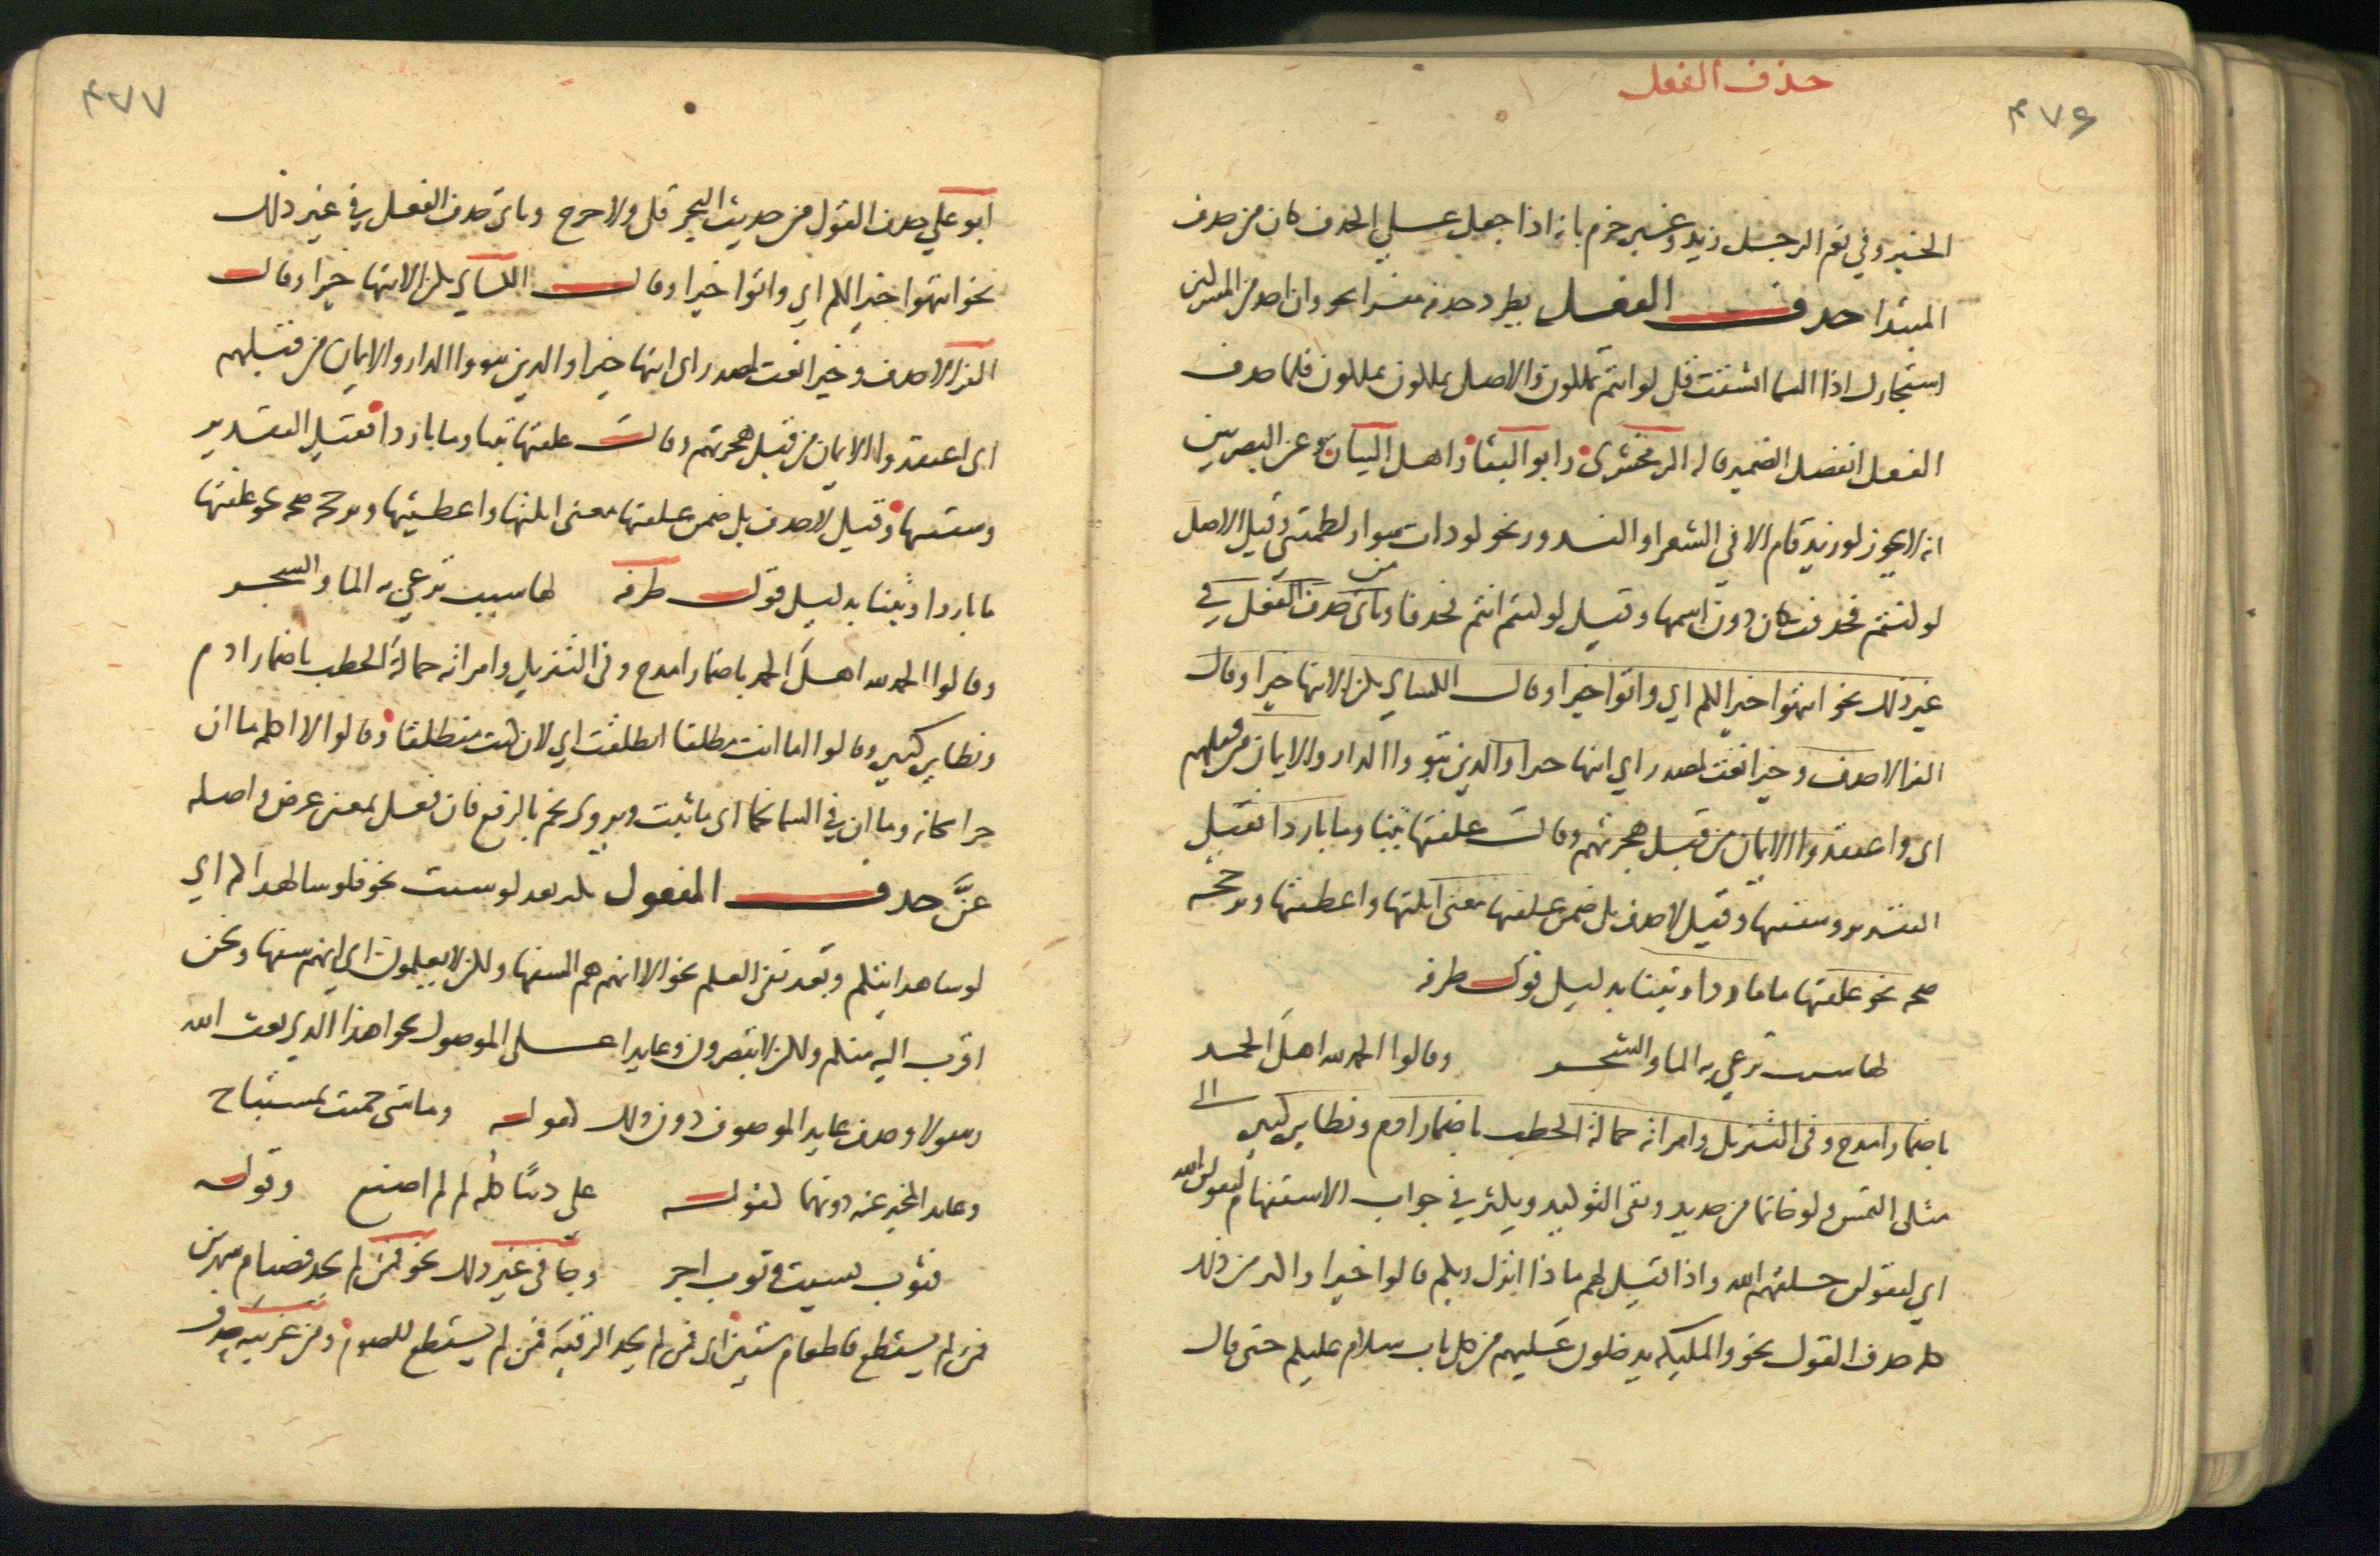 حذف الفعل
۴۷۶
الخبر وفي نعم الرجل زيد وغيره جزم بانه اذا جعل على الحذف كان من حذف
المبتدا حذف الفعل يطرد حذفه مفسرا نحو وان احد من المشركين
استجارك اذا السما انشقت قل لو انتم تملكون والاصل تملكون تملكون فلما حذف
الفعل انفصل الضمير قاله الزمخشرى وابو البقا واهل البيان وعن البصريين
انه لا يجوز لو زيد قام الا في الشعر او الندور نحو لو ذات سوار لطمتني وقيل الاصل
لو كنتم فحذفت كان دون اسمها وقيل لو كنتم انتم فحذفا وياتى حذف الفعل في
غير ذلك نحو انتهوا خيرا لكم اي واتوا خيرا وقال الكساي يكن الانتها خيرا وقال
الفرا لا حذف وخيرا نعت لمصدر اي انتها خيرا والذين تبووا الدار والايمان من قبلهم
اى واعتقدوا الايمان من قبل هجرتهم وقالت علفتها تبنا وما باردا فقيل
التقدير وسقيتها وقيل لا حذف بل ضمن علفتها معنى انلتها واعطيتها ويرجحه
صحه نحو علفتها ما باردا وتبنا بدليل قوله طرفه
لها سبب ترعي به الما والشجر وقالوا الحمد لله اهل الحمد
باضمار امدح وفى التنزيل وامراته حمالة الحطب باضمار اذم ونظايره كثير الى
مثلى التمس ولو خاتما من حديد وبقى التوكيد ويكثر في جواب الاستفهام ليقولن الله
اي ليقولن خلقهم الله واذا قيل لهم ماذا انزل ربكم قالوا خيرا واكثر من ذلك
كله حذف القول نحو والمليكه يدخلون عليهم من كل باب سلام عليكم حتى قال
۴۷۷
ابو علي حذف القول من حديث البحر قل ولا حرج وياتى حذف الفعل في غير ذلك
نحو انتهوا خيرا لكم اي واتوا خيرا وقال الكساي يكن الانتها خيرا وقال
الفرا لا حذف وخيرا نعت لمصدر اى انتها خيرا والذين تبووا الدار والايمان من قبلهم
اى اعتقدوا الايمان من قبل هجرتهم وقالت علفتها تبنا وما باردا فقيل التقدير
وسقيتها وقيل لا حذف بل ضمن علفتها معنى انلتها واعطيتها ويرجحه صحه نحو علفتها
ما باردا وتبنا بدليل قوله طرفه لها سبب ترعي به الما والشجر
وقالوا الحمد لله اهل الحمد باضمار امدح وفى التنزيل وامراته حمالة الحطب باضمار اذم
ونظايره كثير وقالوا اما انت منطلقا انطلقت اي لان كنت منطلقا وقالوا لا اكلمه ما ان
حرا مكانه وما ان في السما نجما اى ما ثبت ويروى نجم بالرفع فان فعل بمعنى عرض واصله
عنَّ حذف المفعول يكثر بعد لو شيت نحو فلو شا لهداكم اي
لو شا هدايتكم وبعد نفى العلم نحو الا انهم هم السفها ولكن لا يعلمون اى انهم سفها ونحن
اقرب اليه منكم ولكن لا تبصرون وعايدا على الموصول نحو اهذا الذي بعث الله
رسولا وحذف عايد الموصوف دون ذلك كقوله وما شى حميت بمستباح
وعايد المخبر عنه دونهما كقوله علي ذنبًا كلُه لم اصنع وقوله
فثوب نسيت وثوب اجر وجا فى غير ذلك نحو فمن لم يجد فصيام شهرين
فمن لم يستطع فاطعام ستين اى فمن لم يجد الرقبه فمن لم يستطع للصوم ومن غريبه حذف